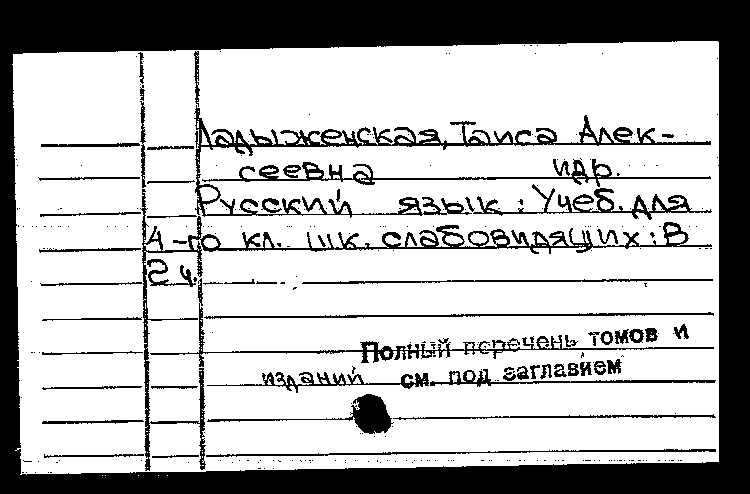 Ладыженская, Таиса Алек-
сеевна идр.
Русский язык : Учеб. для
4-го кл. шк. слабовидящих : В
2 ч.
Полный перечень томов и
изданий см. под заглавием